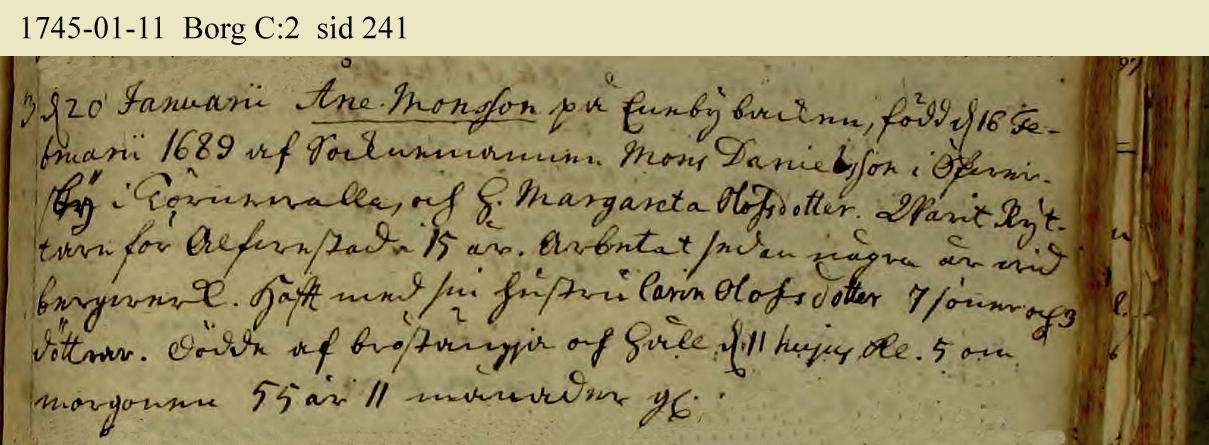 1745-01-11 Borg C:2 sid 241
3 d 20 Januarii Åne Monsson på Eneby backen, född d 16 Fe-
bruarii 1689 af Socknemannen Mons Danielsson i
by i Törnevalla, och H. Margareta Olofsdotter. Warit Ryt-
tare för Alfvestad i 15 år. Arbetat sedan några år vid
bergverk. Haft med sin hustru Carin Olofsdotter 7 söner och 3
döttrar. Dödde af bröstängja och håll d. 11 hujus Kl. 5 om
morgonen 55 år 11 månader